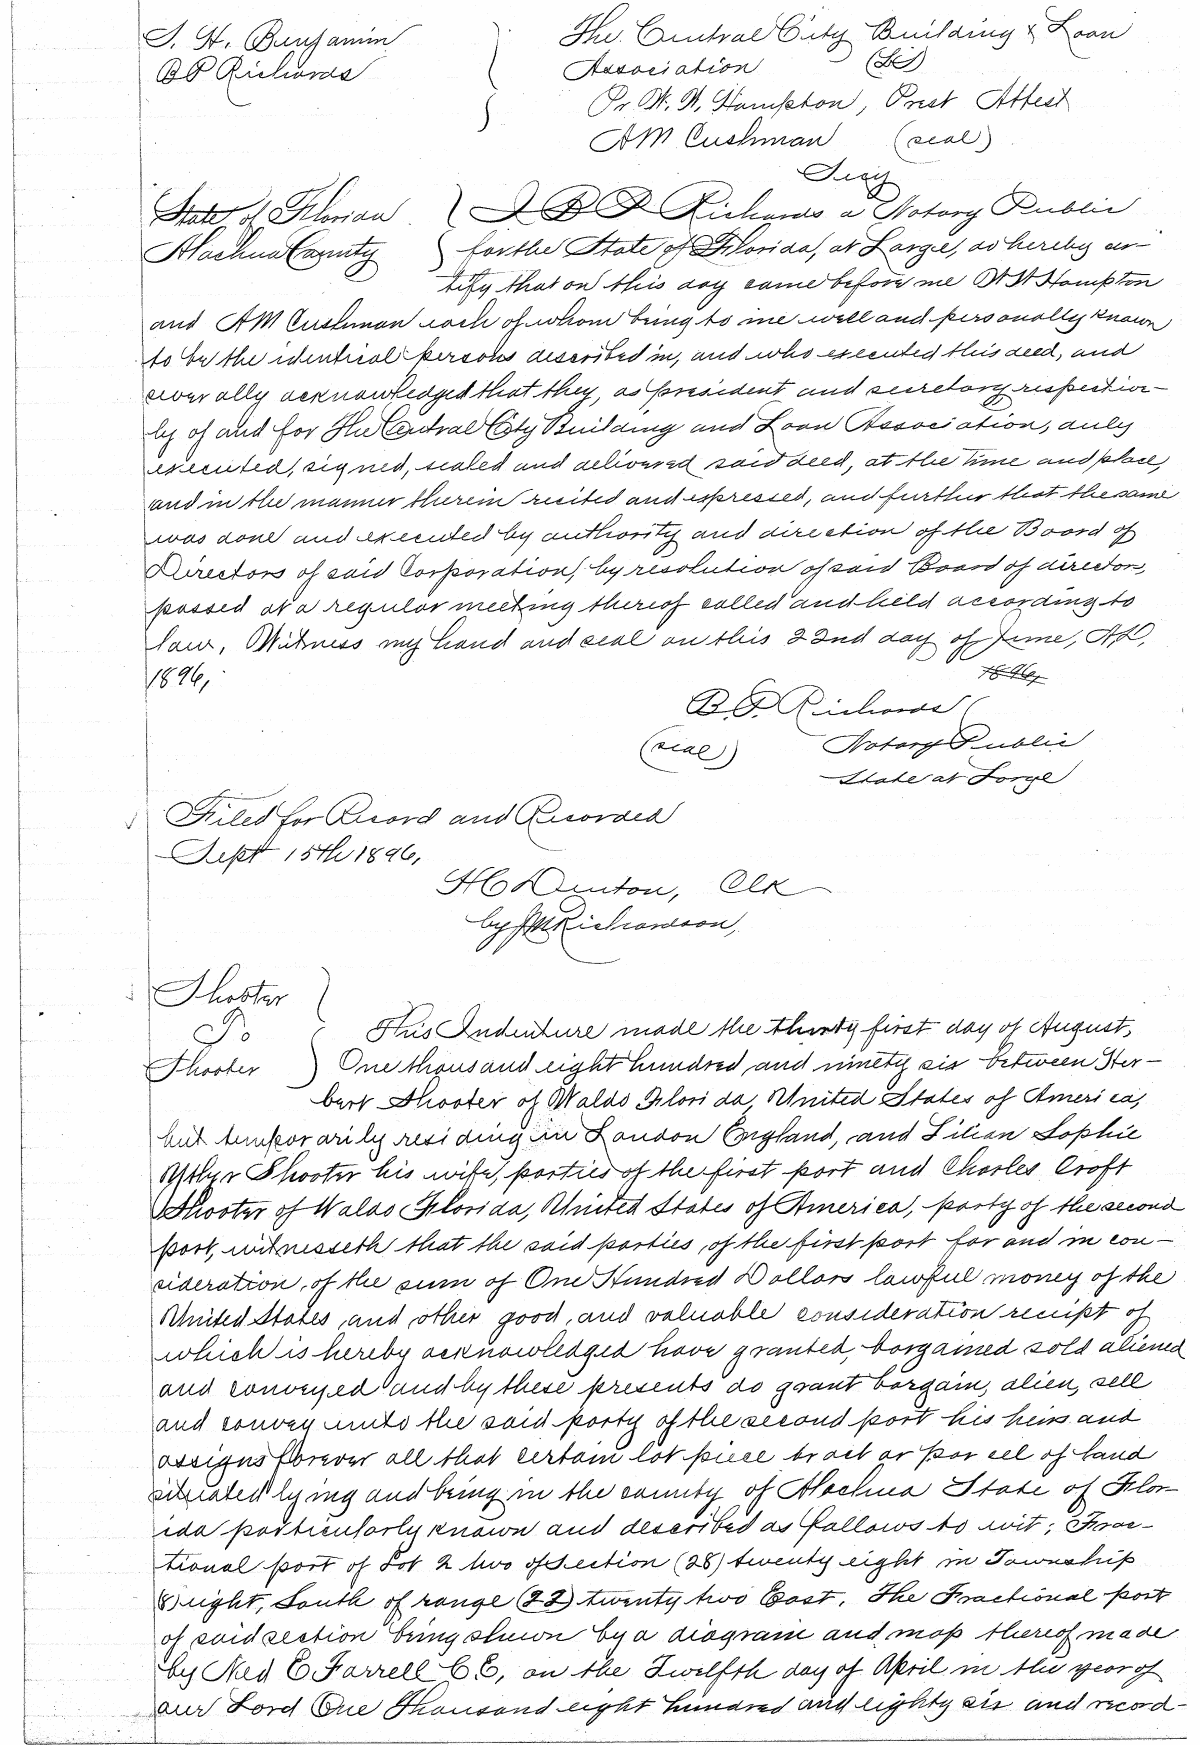 J. H. Benjamin
B P Richards
The Central City Building & Loan
Association (LS)
Pr W. W. Hampton, Prest Attest
A M Cushman (seal)
Secy
State of Florida
Alachua County
I B P Richards a Notary Public
for the State of Florida, at Large, do hereby cer-
tify that on this day came before me W W Hampton
and A M Cushman each of whom being to me well and personally known
to be the identical persons described in, and who executed this deed, and
severally acknowledged that they, as president and secretary respective-
ly of and for The Central City Building and Loan Association, duly
executed, signed, sealed and delivered said deed, at the time and place,
and in the manner therein recited and expressed, and further that the same
was done and executed by authority and direction of the Board of
Directors of said Corporation, by resolution of said Board of director,
passed at a regular meeting thereof called and held according to
law, Witness my hand and seal on this 22nd day of June, AD,
1896,
1896,
B. P. Richards
(seal) Notary Public
State at Large
Filed for Record and Recorded
Sept 15th 1896,
H C Denton, Clk
by Richardson,
Shooter
To
Shooter
This Indenture made the thirty first day of August,
One thousand eight hundred and ninety six between Her-
bert Shooter of Waldo Florida, United States of America,
but temporarily residing in London England, and Lilian Sophie
Shooter his wife, parties of the first part and Charles Croft
Shooter of Waldo Florida, United States of America, party of the second
part, witnesseth that the said parties of the first part for and in con-
sideration of the sum of One Hundred Dollars lawful money of the
United States, and other good, and valuable consideration receipt of
which is hereby acknowledged have granted, bargained sold aliened
and conveyed and by these presents do grant bargain, alien, sell
and convey unto the said party of the second part his heirs and
assigns forever all that certain lot piece tract or parcel of land
situated lying and being in the county of Alachua State of Flor-
ida particularly known and described as follows to wit; Frac-
tional part of Lot 2 two of Section (28) twenty eight in Township
(8) eight, South of range (22) twenty two East. The Fractional part
of said section being shewn by a diagram and map thereof made
by Ned E Farrell C E, on the Twelfth day of April in the year of
our Lord One Thousand eight hundred and eighty six and record-